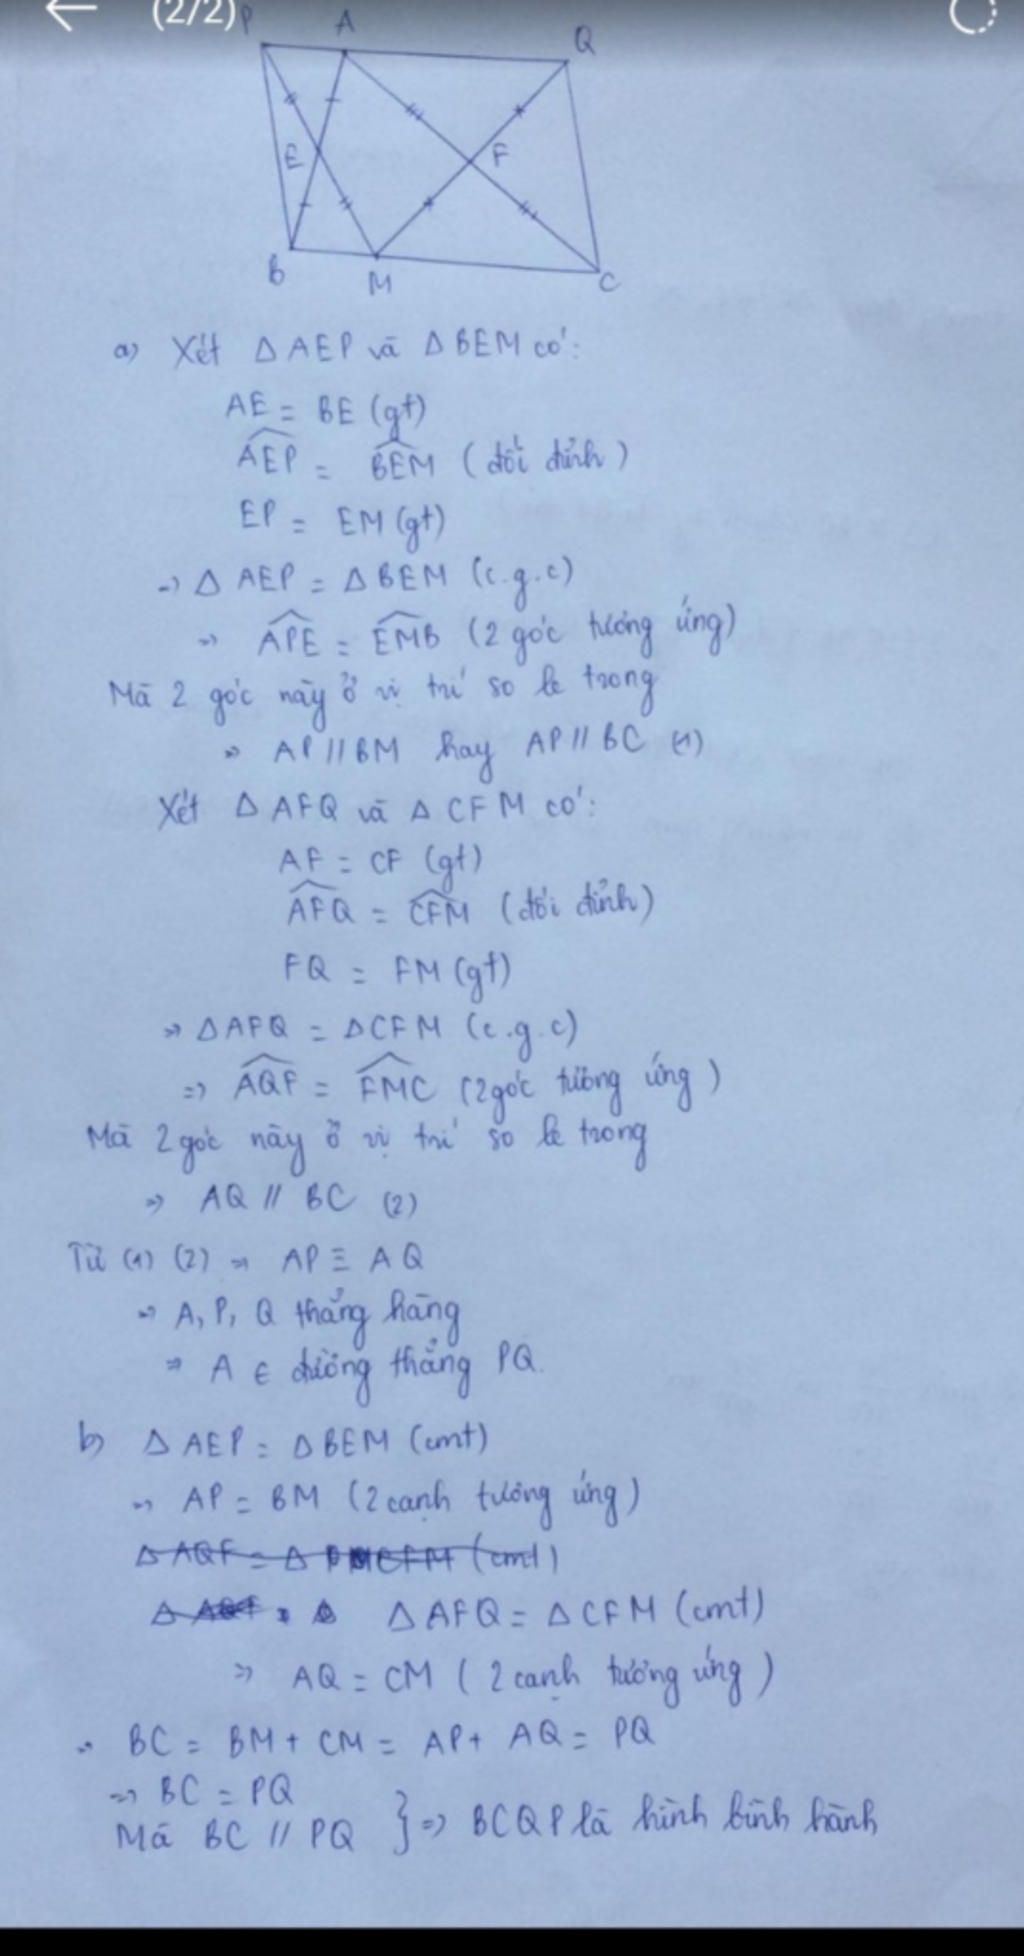 (2/2)
P A Q
E F
B M C
a) Xét Δ AEP và Δ BEM có:
AE = BE (gt)
AEP = BEM (đối đỉnh)
EP = EM (gt)
=> Δ AEP = Δ BEM (c.g.c)
=> APE = EMB (2 góc tương ứng)
Mà 2 góc này ở vị trí so le trong
=> AP // BM hay AP // BC (1)
Xét Δ AFQ và Δ CFM có:
AF = CF (gt)
AFQ = CFM (đối đỉnh)
FQ = FM (gt)
=> Δ AFQ = Δ CFM (c.g.c)
=> AQF = FMC (2 góc tương ứng)
Mà 2 góc này ở vị trí so le trong
=> AQ // BC (2)
Từ (1) (2) => AP ≡ AQ
=> A, P, Q thẳng hàng
=> A ∈ đường thẳng PQ.
b) Δ AEP = Δ BEM (cmt)
=> AP = BM (2 cạnh tương ứng)
Δ AQF = Δ CFM (cmt)
Δ AQF = Δ Δ AFQ = Δ CFM (cmt)
=> AQ = CM (2 cạnh tương ứng)
=> BC = BM + CM = AP + AQ = PQ
=> BC = PQ
Mà BC // PQ } => BCQP là hình bình hành